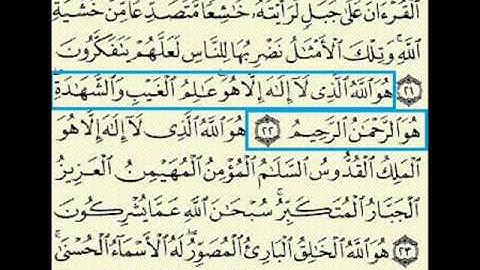 ٱلْقُرْءَانَ عَلَىٰ جَبَلٍ لَّرَأَيْتَهُۥ خَٰشِعًا مُّتَصَدِّعًا مِّنْ خَشْيَةِ
ٱللَّهِ ۚ وَتِلْكَ ٱلْأَمْثَٰلُ نَضْرِبُهَا لِلنَّاسِ لَعَلَّهُمْ يَتَفَكَّرُونَ
﴿٢١﴾ هُوَ ٱللَّهُ ٱلَّذِى لَآ إِلَٰهَ إِلَّا هُوَ ۖ عَٰلِمُ ٱلْغَيْبِ وَٱلشَّهَٰدَةِ ۖ
هُوَ ٱلرَّحْمَٰنُ ٱلرَّحِيمُ ﴿٢٢﴾ هُوَ ٱللَّهُ ٱلَّذِى لَآ إِلَٰهَ إِلَّا هُوَ
ٱلْمَلِكُ ٱلْقُدُّوسُ ٱلسَّلَٰمُ ٱلْمُؤْمِنُ ٱلْمُهَيْمِنُ ٱلْعَزِيزُ
ٱلْجَبَّارُ ٱلْمُتَكَبِّرُ ۚ سُبْحَٰنَ ٱللَّهِ عَمَّا يُشْرِكُونَ
﴿٢٣﴾ هُوَ ٱللَّهُ ٱلْخَٰلِقُ ٱلْبَارِئُ ٱلْمُصَوِّرُ ۖ لَهُ ٱلْأَسْمَآءُ ٱلْحُسْنَىٰ ۚ